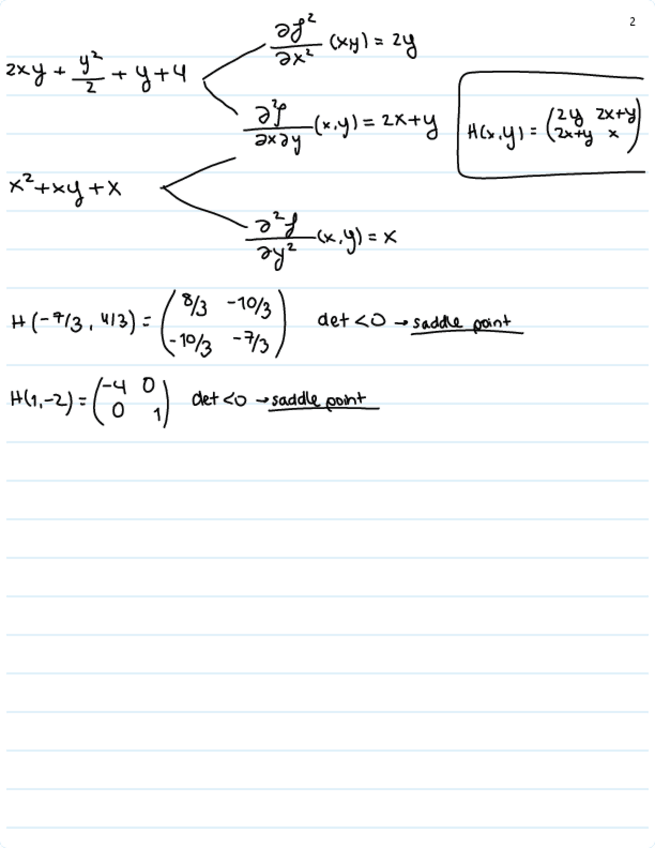 2
2xy + y²/2 + y + 4
∂f²/∂x² (xy) = 2y
∂²f/∂x∂y (x,y) = 2x+y
H(x,y) = (2y 2x+y
2x+y x)
x² + xy + x
∂²f/∂y² (x,y) = x
H(-7/3, 4/3) = (8/3 -10/3
-10/3 -7/3) det<0 → saddle point
H(1,-2) = (-4 0
0 1) det<0 → saddle point